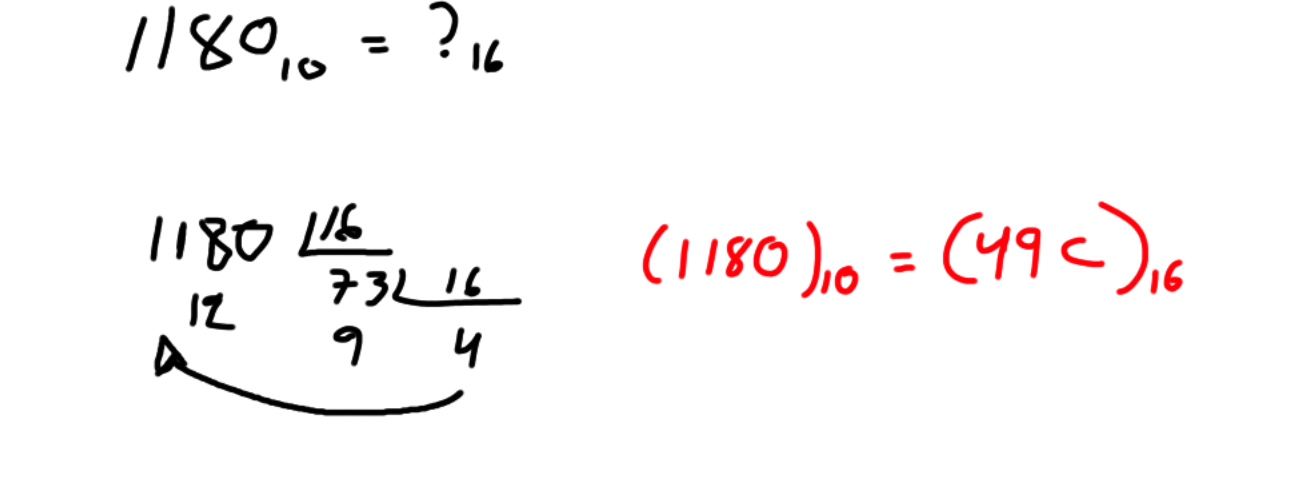 1180₁₀ = ?₁₆
1180 16
73 16
12 9 4
(1180)₁₀ = (49C)₁₆